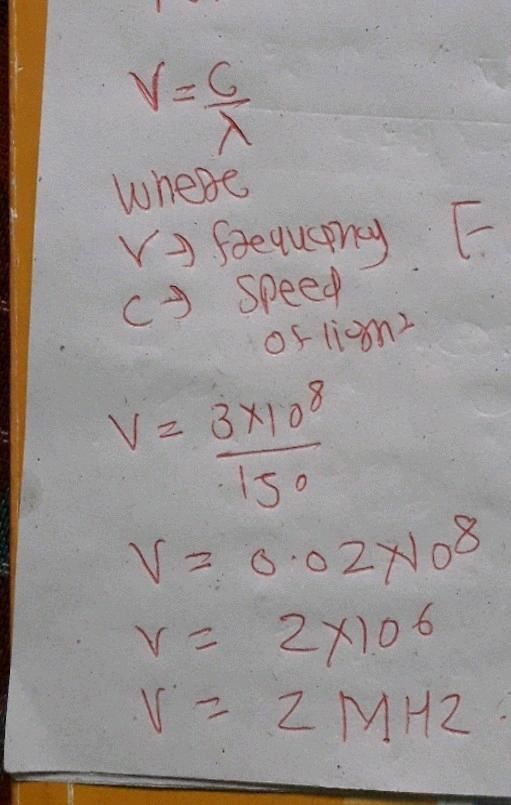 V = C/λ
where
V → frequency
C → speed
of light
V = 3×10⁸/150
V = 0.02×10⁸
V = 2×10⁶
V = 2 MHZ